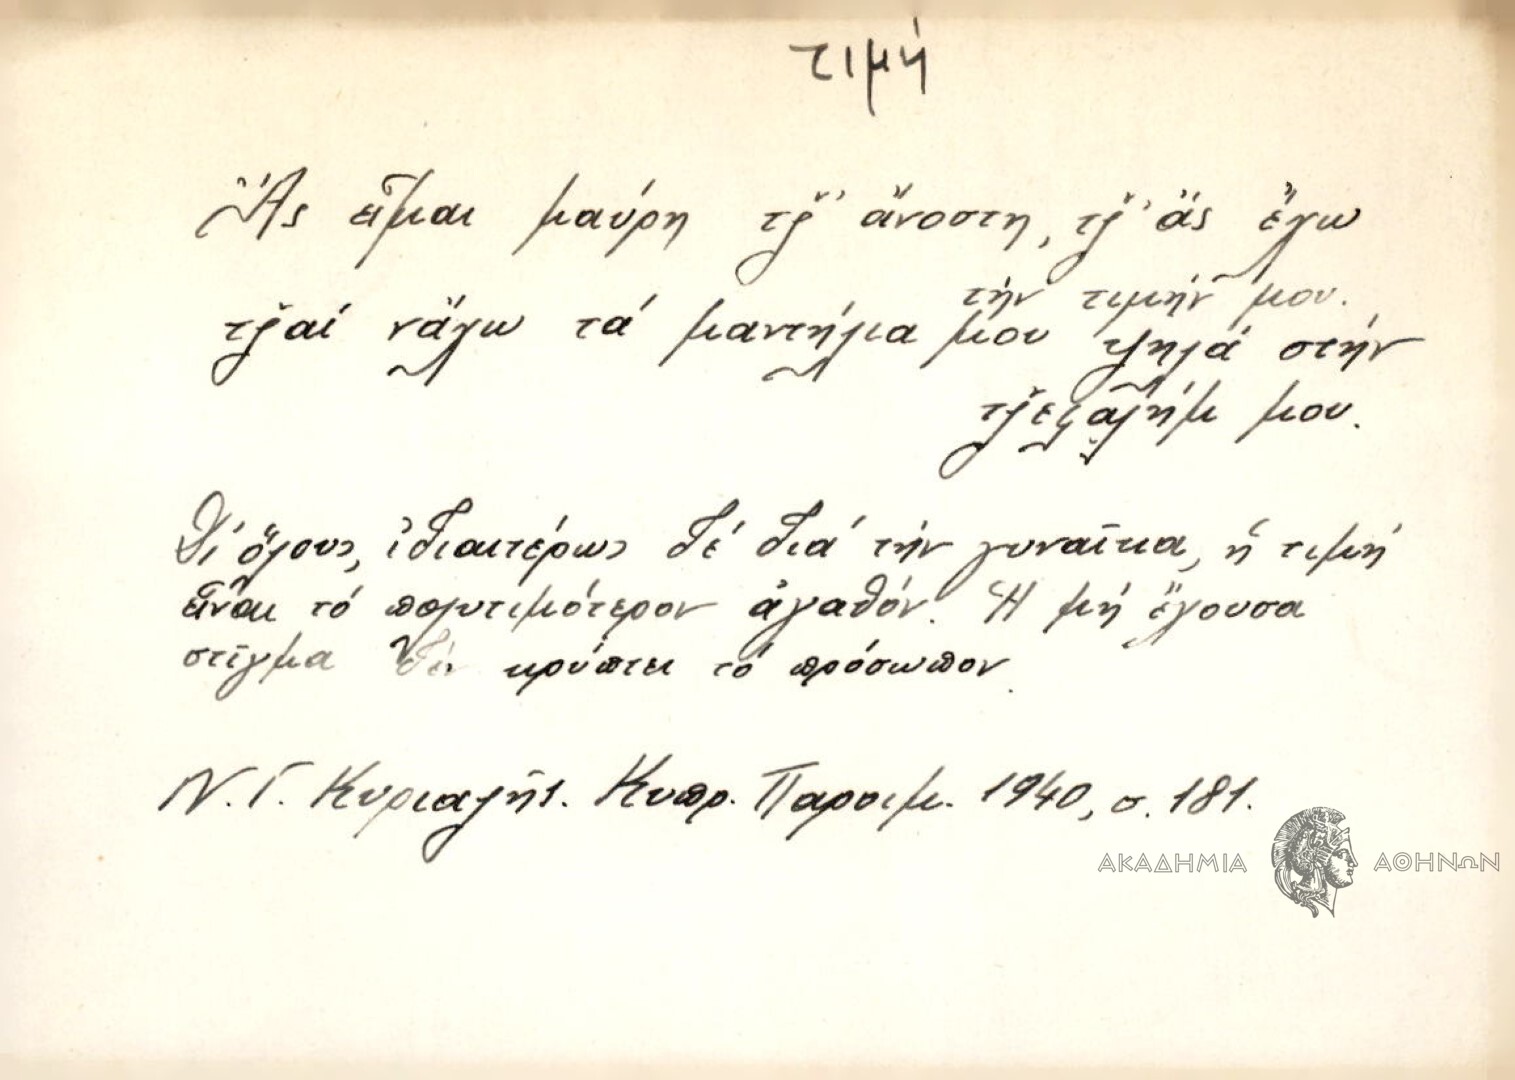 τιμή
Ἄς εἶμαι μαύρη τζ̌' ἄνοστη, τζ̌' ἄς ἔχω
την τιμήν μου.
τζ̌αί νἄχω τά μαντήλια μου ψηλά στήν
τζ̌εφαλήμ μου.
Δι' ὅλους, ἰδιαιτέρως δέ διά τήν γυναῖκα, ἡ τιμή
εἶναι τό πολυτιμότερον ἀγαθόν. Ἡ μή ἔχουσα
στῖγμα δέν κρύπτει τό πρόσωπον.
Ν. Γ. Κυριαζῆς. Κυπρ. Παροιμ. 1940, σ. 181.
ΑΚΑΔΗΜΙΑ ΑΘΗΝΩΝ